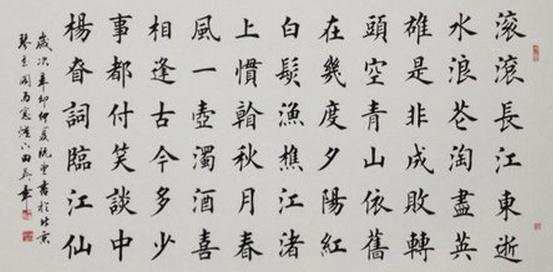 滚滚長江東逝
水浪花淘盡英
雄是非成敗轉
頭空青山依舊
在幾度夕陽紅
白髮漁樵江渚
上慣看秋月春
風一壺濁酒喜
相逢古今多少
事都付笑談中
楊眘詞臨江仙
歲次辛卯仲夏書於北京